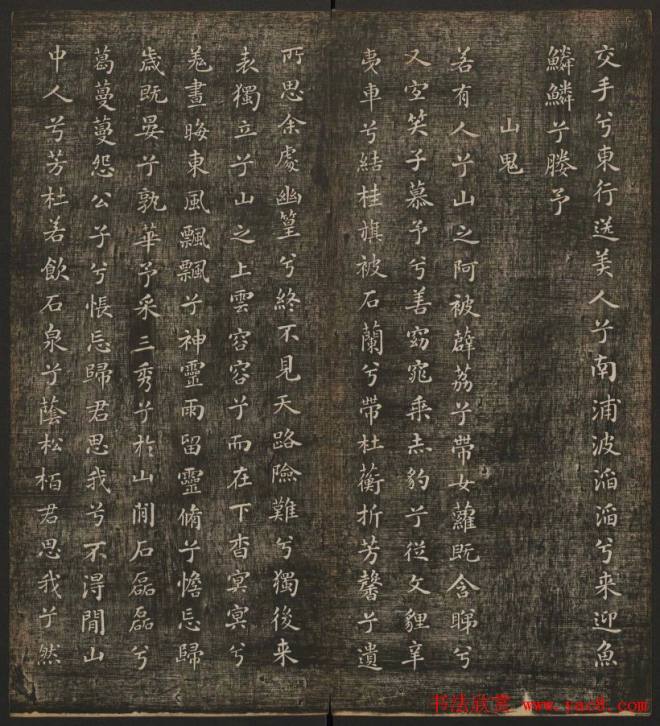 交手兮東行送美人兮南浦波滔滔兮来迎魚
鱗鱗兮媵予
山鬼
若有人兮山之阿被薜荔兮帶女蘿既含睇兮
又宜笑子慕予兮善窈窕乘赤豹兮從文貍辛
夷車兮結桂旗被石蘭兮帶杜蘅折芳馨兮遺
所思余處幽篁兮終不見天路險難兮獨後来
表獨立兮山之上雲容容兮而在下杳冥冥兮
羌晝晦東風飄飄兮神靈雨留靈脩兮憺忘歸
歲既晏兮孰華予采三秀兮於山間石磊磊兮
葛蔓蔓怨公子兮悵忘歸君思我兮不得閒山
中人兮芳杜若飲石泉兮蔭松栢君思我兮然
书法欣赏 www.yac8.com